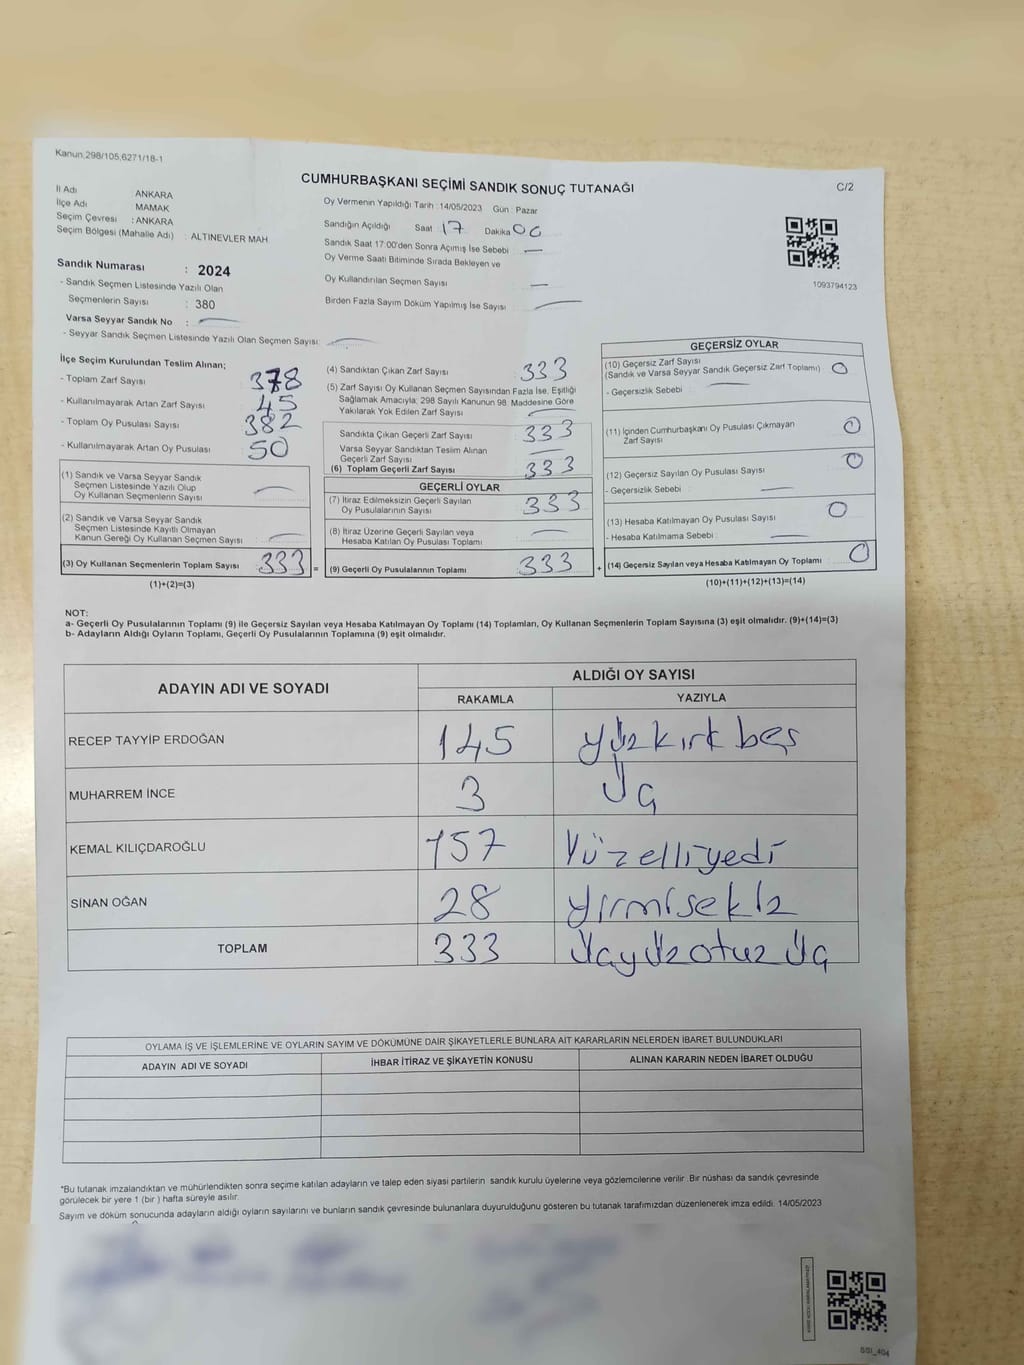 Kanun.298/105,6271/18-1
CUMHURBAŞKANI SEÇİMİ SANDIK SONUÇ TUTANAĞI
C/2
İl Adı ANKARA
İlçe Adı MAMAK
Seçim Çevresi : ANKARA
Seçim Bölgesi (Mahalle Adı) : ALTINEVLER MAH
Oy Vermenin Yapıldığı Tarih : 14/05/2023 Gün : Pazar
Sandığın Açıldığı Saat : 17 Dakika 00
Sandık Saat 17:00'den Sonra Açımış İse Sebebi : —
Oy Verme Saati Bitiminde Sırada Bekleyen ve
Oy Kullandırılan Seçmen Sayısı —
Birden Fazla Sayım Döküm Yapılmış İse Sayısı : —
1093794123
Sandık Numarası : 2024
- Sandık Seçmen Listesinde Yazılı Olan
Seçmenlerin Sayısı : 380
Varsa Seyyar Sandık No : —
- Seyyar Sandık Seçmen Listesinde Yazılı Olan Seçmen Sayısı: —
İlçe Seçim Kurulundan Teslim Alınan;
- Toplam Zarf Sayısı 378
- Kullanılmayarak Artan Zarf Sayısı 45
- Toplam Oy Pusulası Sayısı 382
- Kullanılmayarak Artan Oy Pusulası 50
(1) Sandık ve Varsa Seyyar Sandık
Seçmen Listesinde Yazılı Olup
Oy Kullanan Seçmenlerin Sayısı —
(2) Sandık ve Varsa Seyyar Sandık
Seçmen Listesinde Kayıtlı Olmayan
Kanun Gereği Oy Kullanan Seçmen Sayısı : —
(3) Oy Kullanan Seçmenlerin Toplam Sayısı 333 =
(1)+(2)=(3)
(4) Sandıktan Çıkan Zarf Sayısı : 333
(5) Zarf Sayısı Oy Kullanan Seçmen Sayısından Fazla İse, Eşitliği
Sağlamak Amacıyla; 298 Sayılı Kanunun 98. Maddesine Göre
Yakılarak Yok Edilen Zarf Sayısı —
Sandıkta Çıkan Geçerli Zarf Sayısı 333
Varsa Seyyar Sandıktan Teslim Alınan
Geçerli Zarf Sayısı —
(6) Toplam Geçerli Zarf Sayısı 333
GEÇERLİ OYLAR
(7) İtiraz Edilmeksizin Geçerli Sayılan
Oy Pusulalarının Sayısı : 333
(8) İtiraz Üzerine Geçerli Sayılan veya
Hesaba Katılan Oy Pusulası Toplamı —
(9) Geçerli Oy Pusulalarının Toplamı 333 +
GEÇERSİZ OYLAR
(10) Geçersiz Zarf Sayısı
(Sandık ve Varsa Seyyar Sandık Geçersiz Zarf Toplamı) : 0
- Geçersizlik Sebebi : —
(11) İçinden Cumhurbaşkanı Oy Pusulası Çıkmayan
Zarf Sayısı 0
(12) Geçersiz Sayılan Oy Pusulası Sayısı 0
- Geçersizlik Sebebi : —
(13) Hesaba Katılmayan Oy Pusulası Sayısı : 0
- Hesaba Katılmama Sebebi : —
(14) Geçersiz Sayılan veya Hesaba Katılmayan Oy Toplamı 0
(10)+(11)+(12)+(13)=(14)
NOT:
a- Geçerli Oy Pusulalarının Toplamı (9) ile Geçersiz Sayılan veya Hesaba Katılmayan Oy Toplamı (14) Toplamları, Oy Kullanan Seçmenlerin Toplam Sayısına (3) eşit olmalıdır. (9)+(14)=(3)
b- Adayların Aldığı Oyların Toplamı, Geçerli Oy Pusulalarının Toplamına (9) eşit olmalıdır.
ADAYIN ADI VE SOYADI ALDIĞI OY SAYISI
RAKAMLA YAZIYLA
RECEP TAYYİP ERDOĞAN 145 yüzkırk beş
MUHARREM İNCE 3 Üç
KEMAL KILIÇDAROĞLU 157 Yüzelliyedi
SİNAN OĞAN 28 yirmisekiz
TOPLAM 333 Üçyüzotuz üç
OYLAMA İŞ VE İŞLEMLERİNE VE OYLARIN SAYIM VE DÖKÜMÜNE DAİR ŞİKAYETLERLE BUNLARA AİT KARARLARIN NELERDEN İBARET BULUNDUKLARI
ADAYIN ADI VE SOYADI İHBAR İTİRAZ VE ŞİKAYETİN KONUSU ALINAN KARARIN NEDEN İBARET OLDUĞU
*Bu tutanak imzalandıktan ve mühürlendikten sonra seçime katılan adayların ve talep eden siyasi partilerin sandık kurulu üyelerine veya gözlemcilerine verilir. Bir nüshası da sandık çevresinde
görülecek bir yere 1 (bir ) hafta süreyle asılır.
Sayım ve döküm sonucunda adayların aldığı oyların sayılarını ve bunların sandık çevresinde bulunanlara duyurulduğunu gösteren bu tutanak tarafımızdan düzenlenerek imza edildi. 14/05/2023